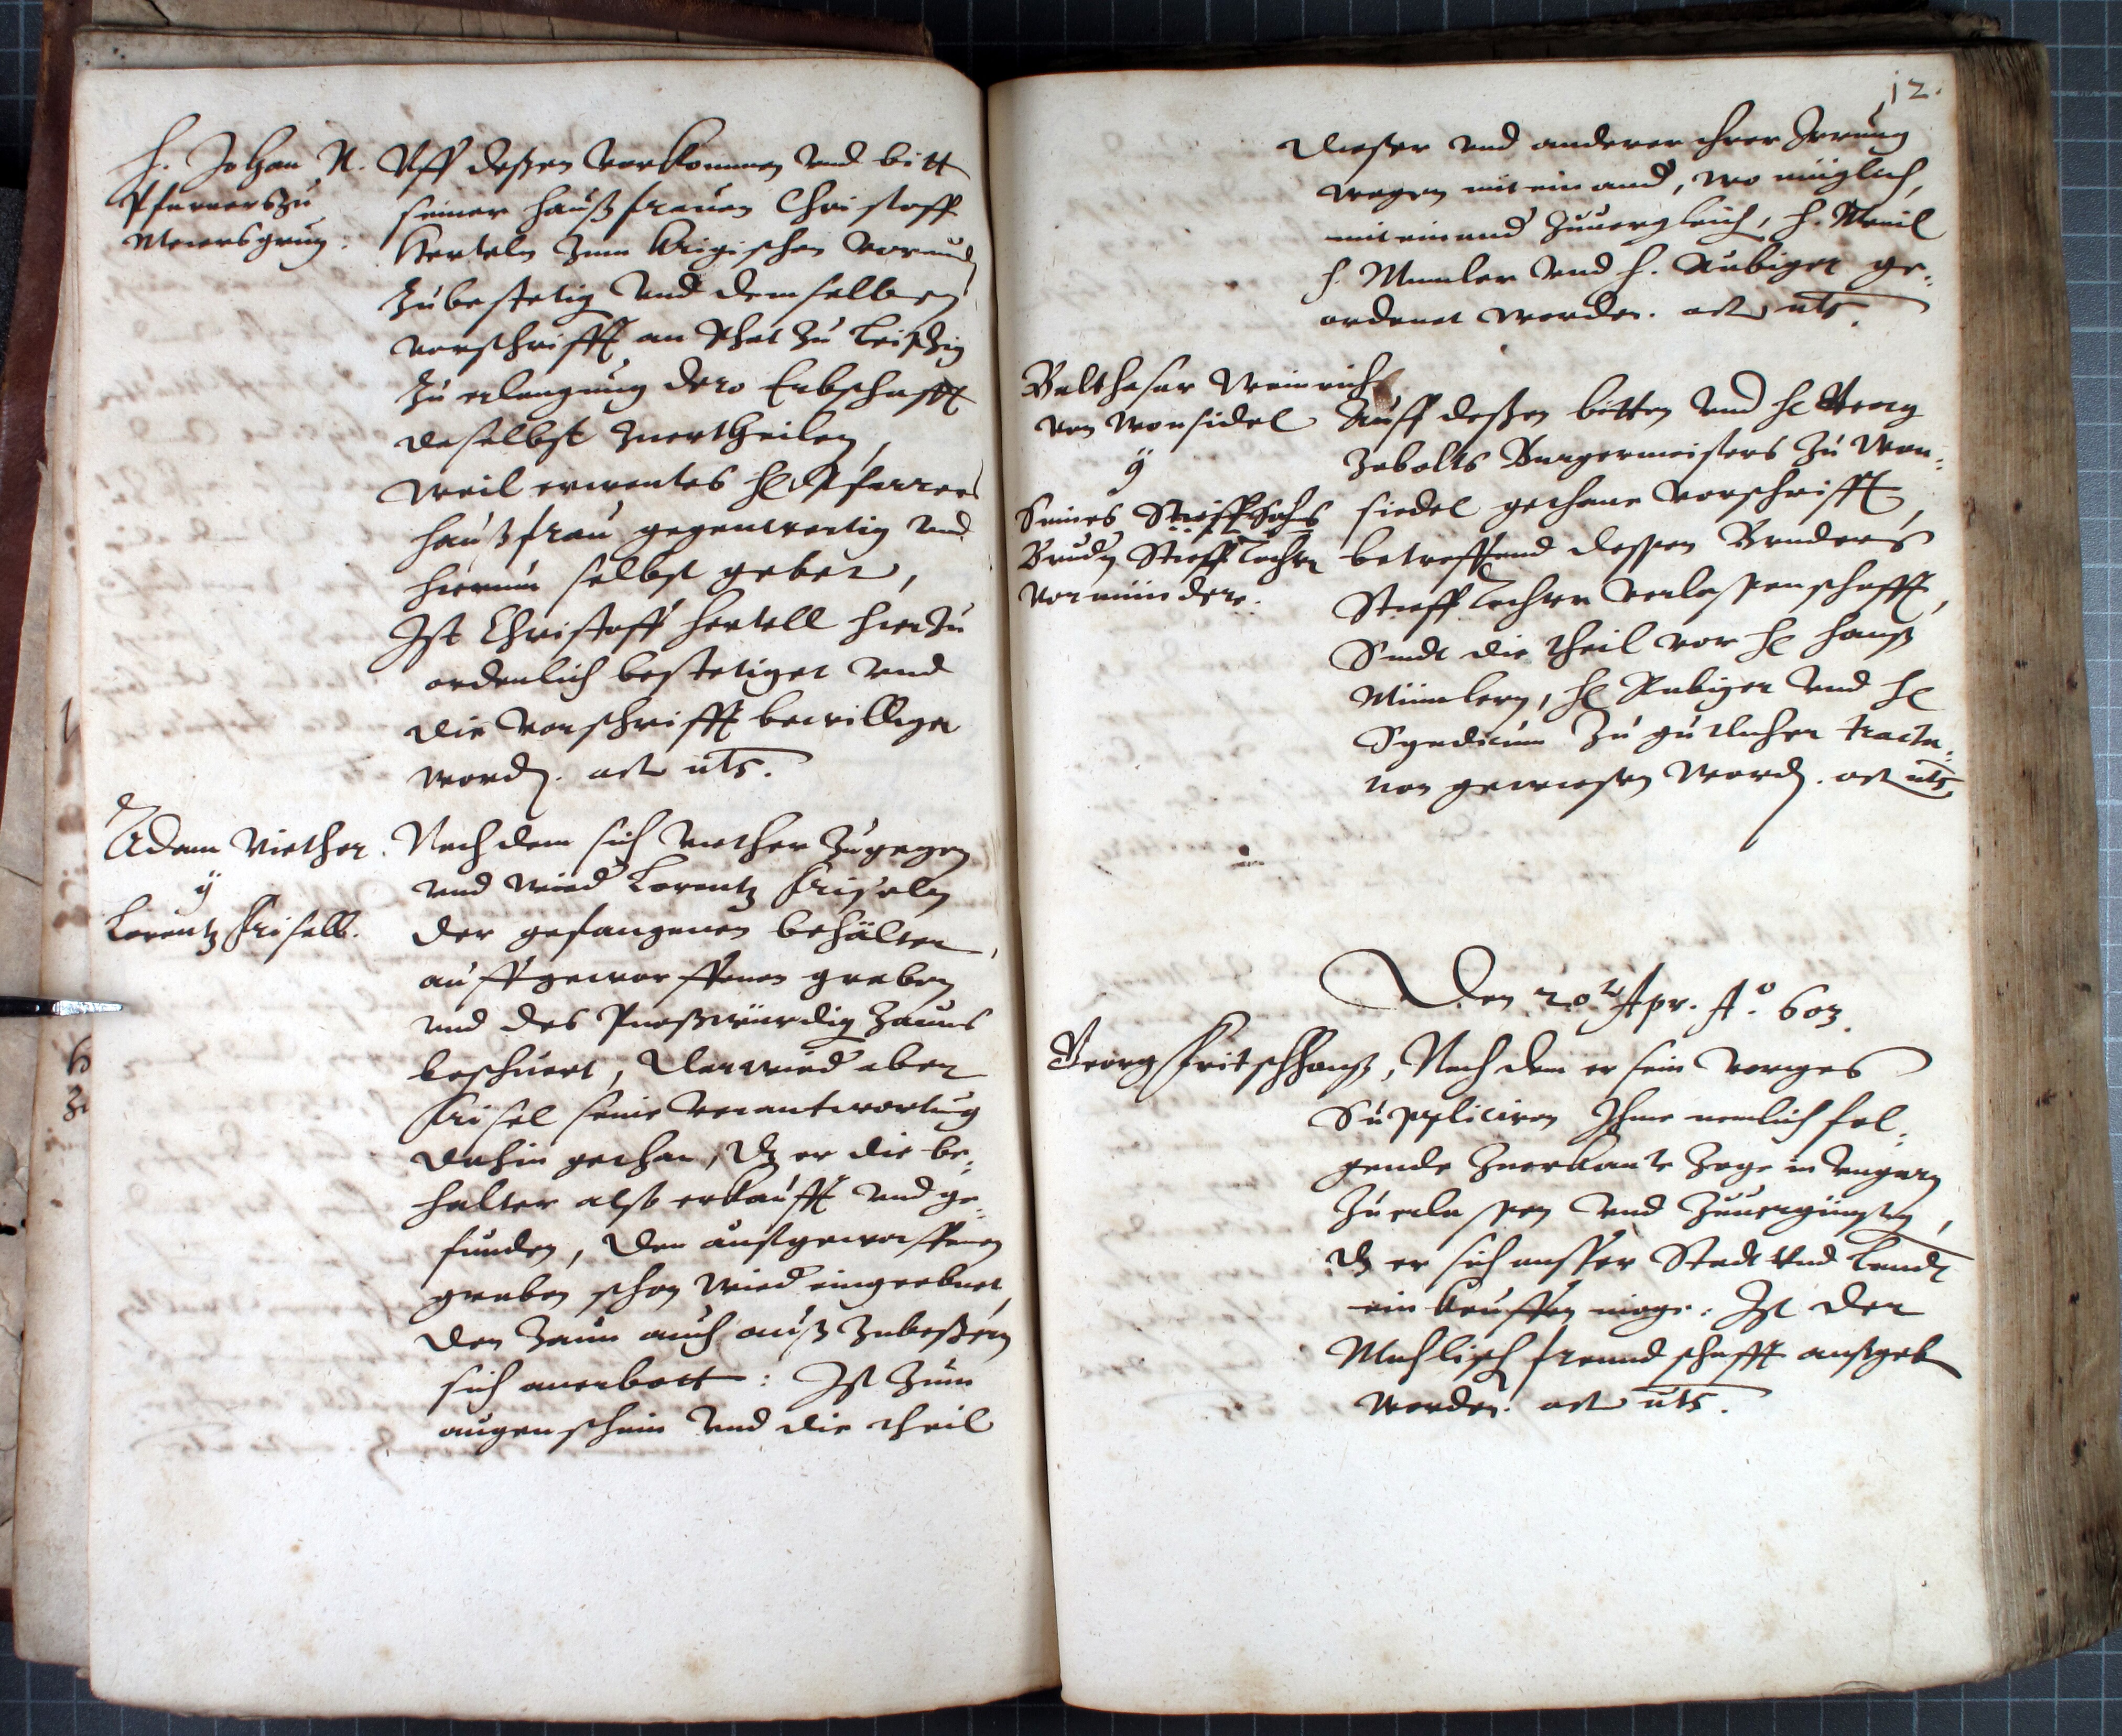 H. Johan N.
Pfarrers zu
Meiersgrun:
Uff deßen vorkommen und bitt
seiner Haußfrauen Christoff
Herteln zum krigischen vormund
zubestetig und demselben
vorschrifft an Rhat zu Leipzig
zu erlangung dero Erbschafft
daselbst zuertheilen,
Weil ermentes H. Pfarrers
haußfrau gegenwertig und
hierum selbst gebet,
Ist Christoff Hertell hierzu
ordenlich bestetiget und
die Vorschrifft bewilliget
word. act uts.
Adam Viether.
ÿ
Lorentz Frisell.
Nachdem sich viether zugegen
und wied Lorentz Friseln
der gefangenen behälter,
auffgeworffenen graben
und des zauns
beschwert, Darwied aber
Frisel seine verantwortug
dahin gethan, dz er die be-
halter also erkaufft und ge-
funden, den aufgeworffenen
graben schon wied eingeebnet,
den Zaun auch auß zubeßern
sich anerbott: Ist zum
augenschein und die theil
12.
dieser und anderer ihrer Irrung
wegen mit einand, wo müglich,
mit einand zuuergleich, H. Meuil
H. Mumler und H. Rubiger ge-
ordenet worden. act uts.
Balthasar Weinrich
von Wonsidel
ÿ
Seines Stieffsohns
Brudn Stiefftochter
vormünder.
Auff deßen bitten und H. Georg
Zobolts Burgermeisters zu Won-
siedel gethane vorschrifft,
betreffend dessen Bruders
Stiefftochter verlassenschafft,
Sindt die theil vor H. Hanß
Mümlern, H. Rubiger und H.
Syndicum zu gütlicher tracta-
tion gewiesen word. act uts.
Den 20t Apr. Ao. 603.
Georg Fritschhanß, Nachdem er sein voriges
Suppliciren Ihme nemlich fol-
gende zuerkante Zoge in Ungarn
zuerlassen und zuuergünsten,
dz er sich ausser Stadt und Landt
ein kauffen möge: Ist der
freundschafft außgeb
worden. act uts.